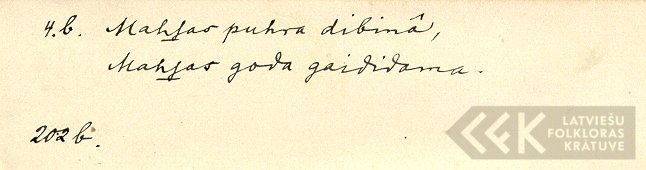 4.b. Mahſas puhra dibinâ,
Mahſas goda gaididama.
202b.
LATVIEŠU
FOLKLORAS
KRĀTUVE